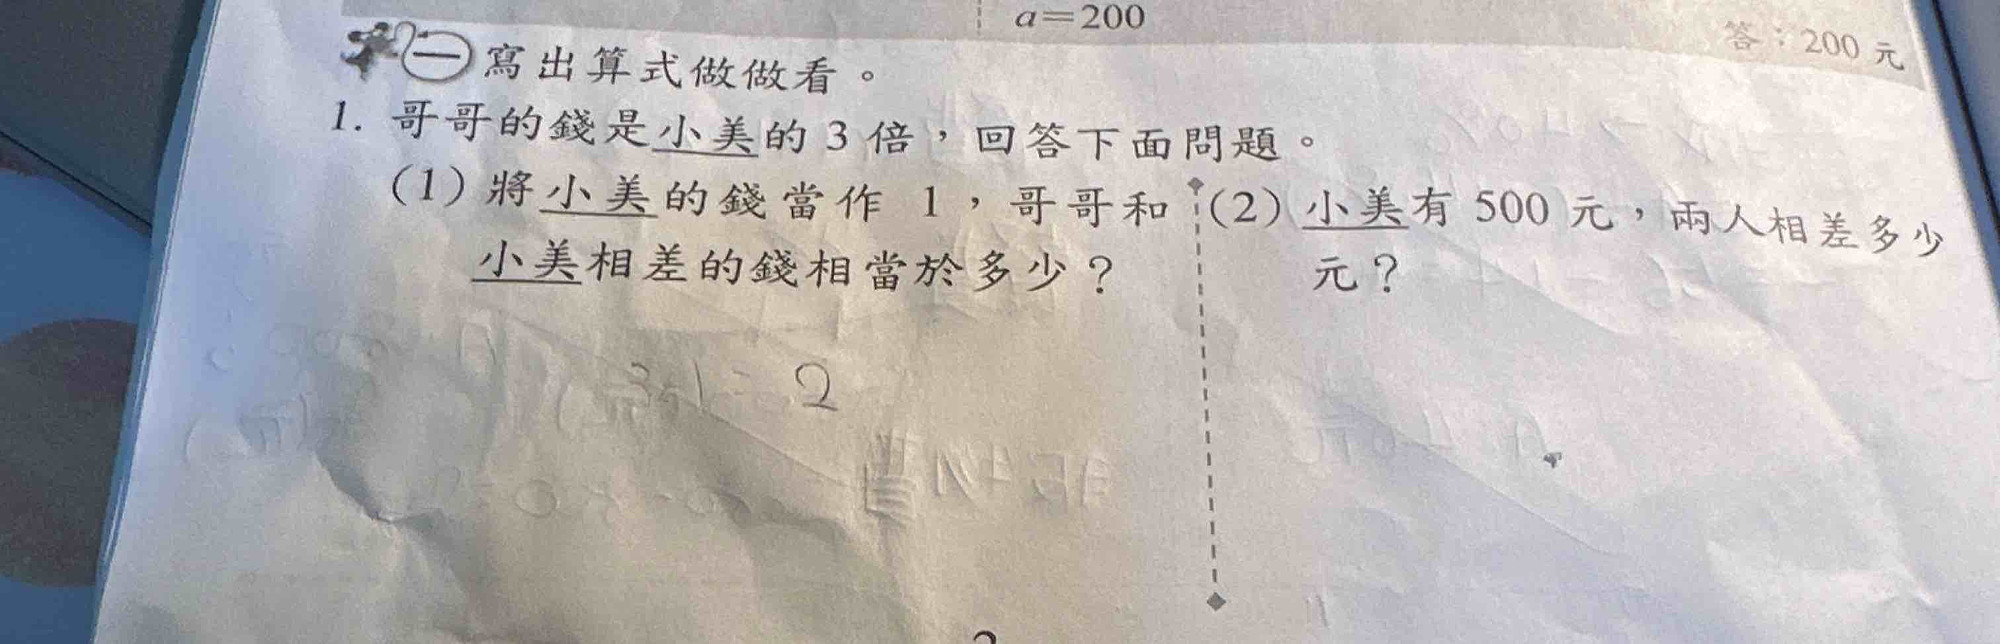 a=200
答：200元
一 寫出算式做做看。
1. 哥哥的錢是小美的3倍，回答下面問題。
(1)將小美的錢當作 1，哥哥和
小美相差的錢相當於多少？
3-1=2
(2)小美有 500 元，兩人相差多少
元？